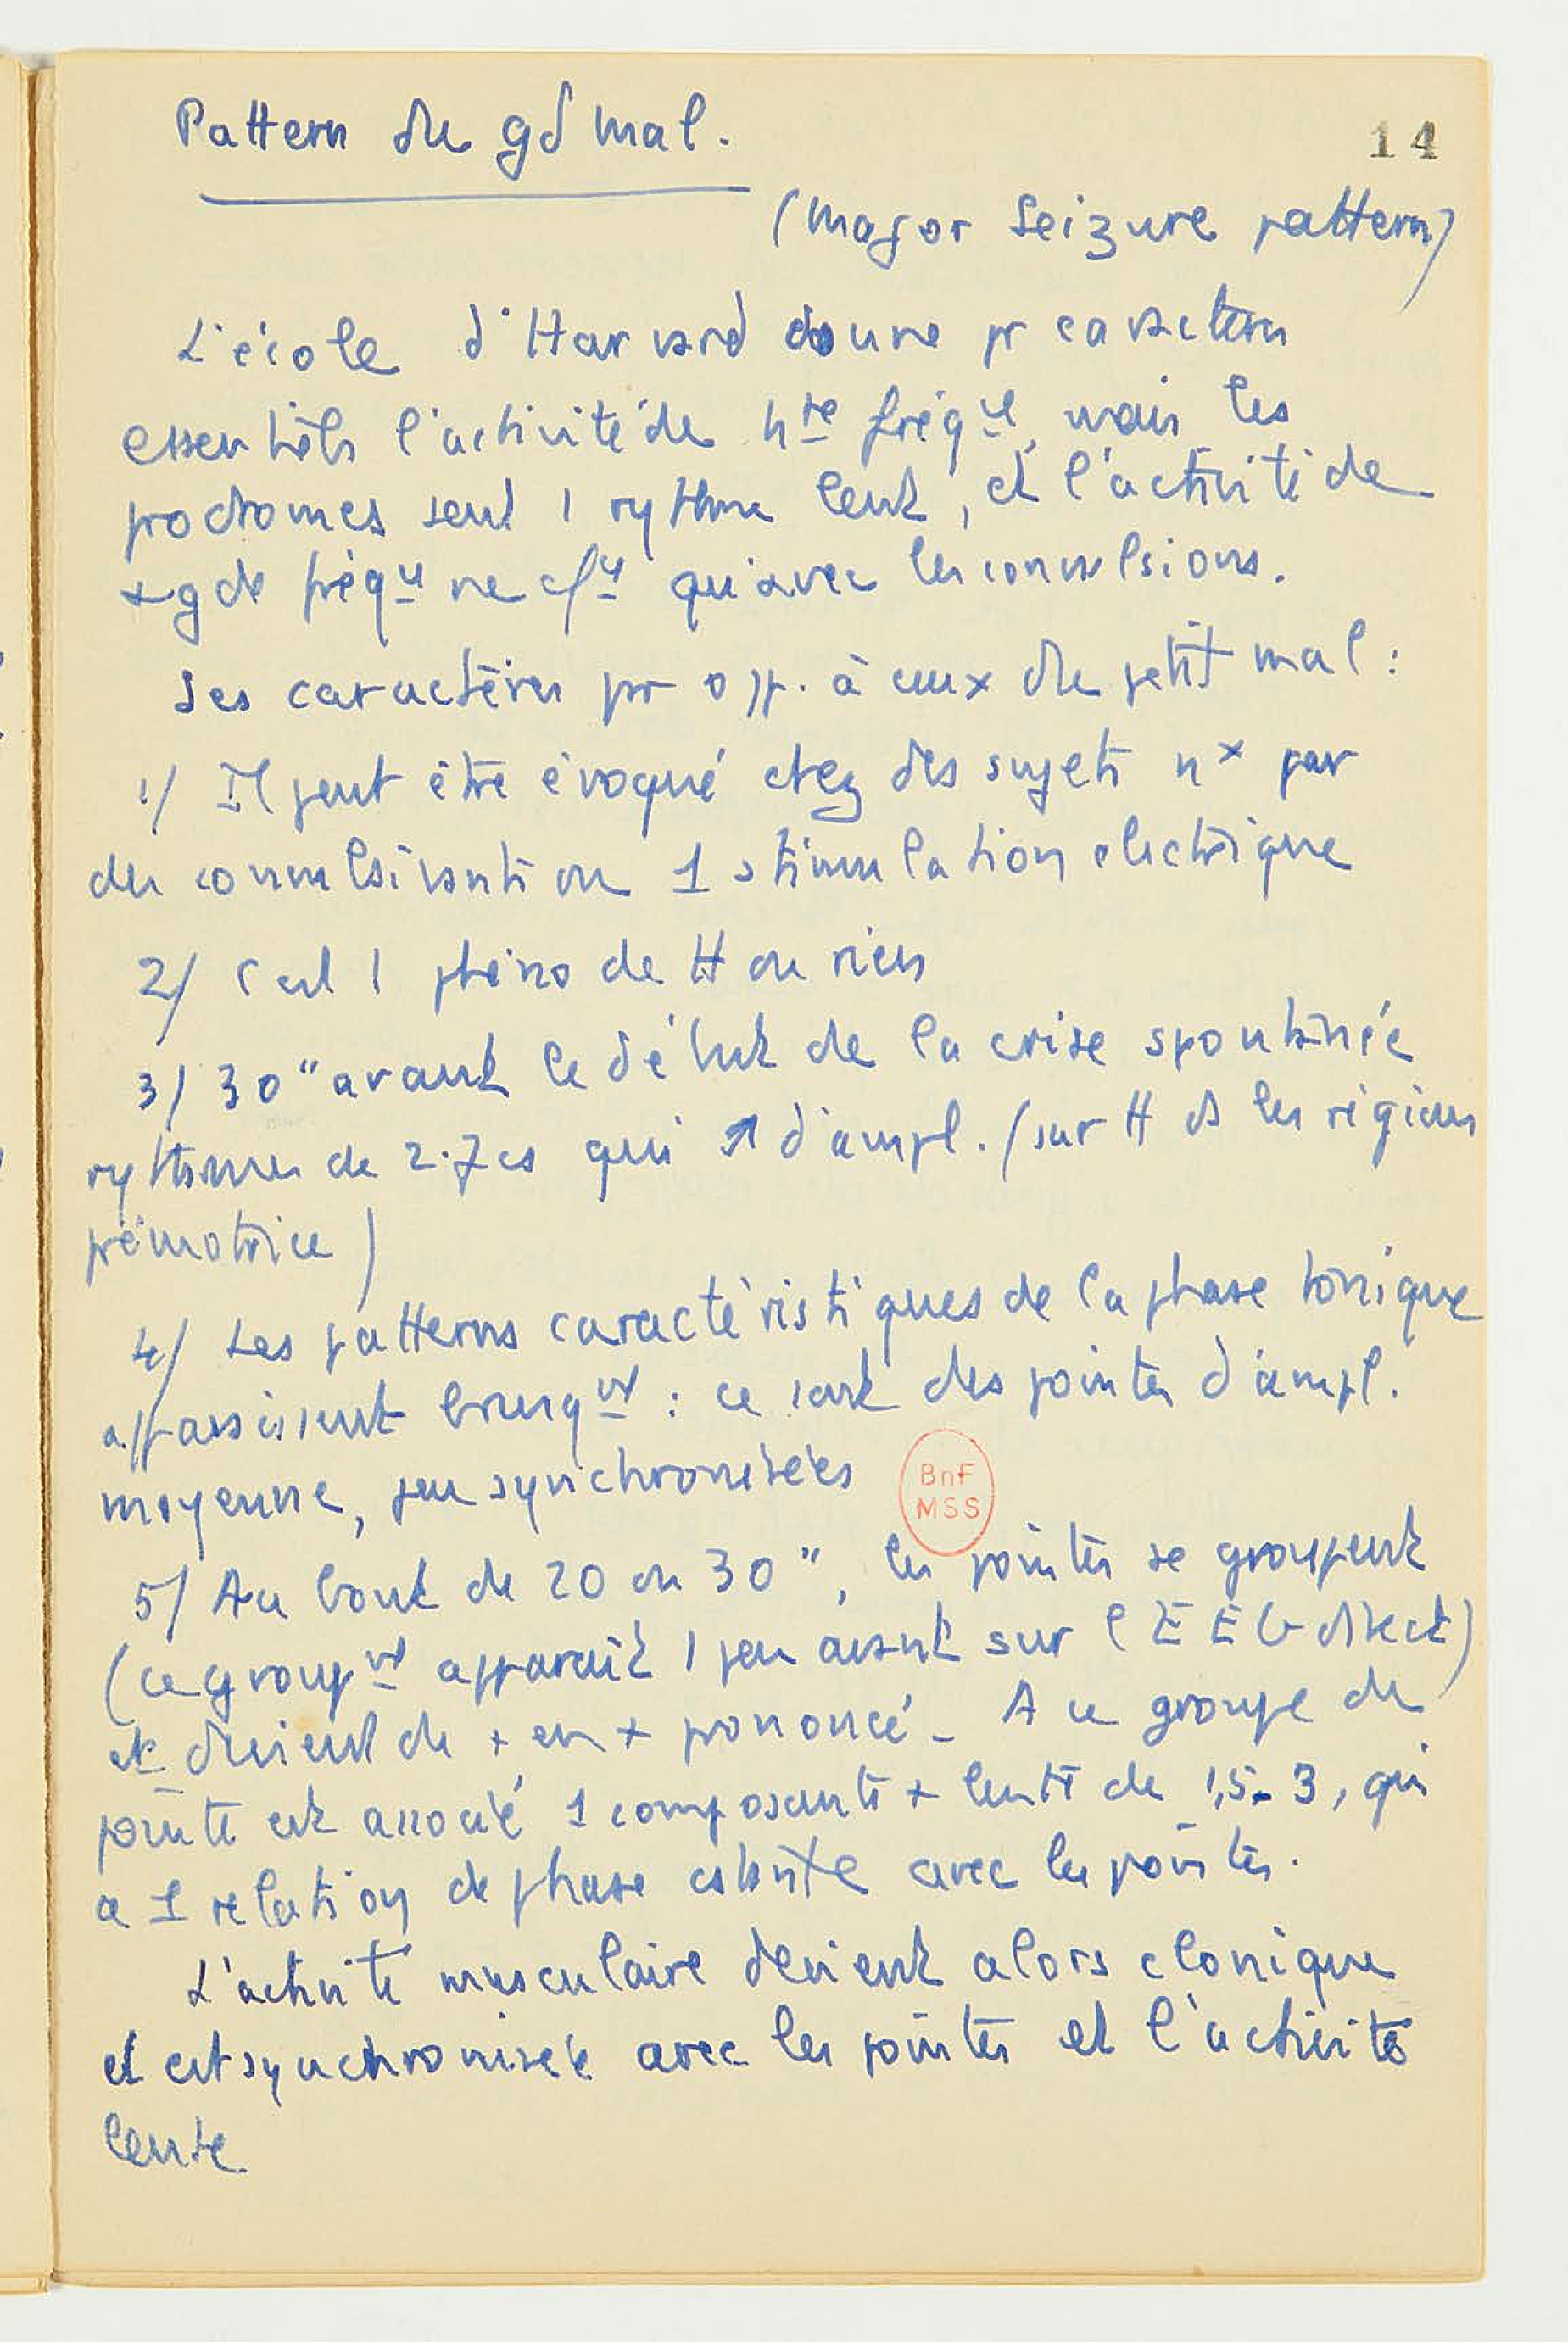 Pattern du gd mal.
14
(major seizure pattern)
L'école d'Harvard donne pr caractères
essentiels l'activité de hte fréqce, mais les
prodromes sont 1 rythme lent, et l'activité de
+ gde fréqce ne cfce qu'avec les convulsions.
Ses caractères pr opp. à ceux du petit mal :
1/ Il peut être évoqué chez des sujets nx par
des convulsivants ou 1 stimulation électrique
2/ C'est 1 phéno de tt ou rien
3/ 30" avant le début de la crise spontanée
rythmes de 2.7 cs qui ↗ d'ampl. (surtt ds les régions
prémotrice)
4/ Les patterns caractéristiques de la phase tonique
apparaissent brusqnt : ce sont des pointes d'ampl.
moyenne, peu synchronisées
BnF
MSS
5/ Au bout de 20 ou 30", les pointes se groupent
(ce groupnt apparait 1 peu avant sur l'EEG direct)
et devient de + en + prononcé - A ce groupe de
pointe est associé 1 composante + lente de 1,5-3, qui
a 1 relation de phase cstante avec les pointes.
L'activité musculaire devient alors clonique
et est synchronisée avec les pointes et l'activité
lente